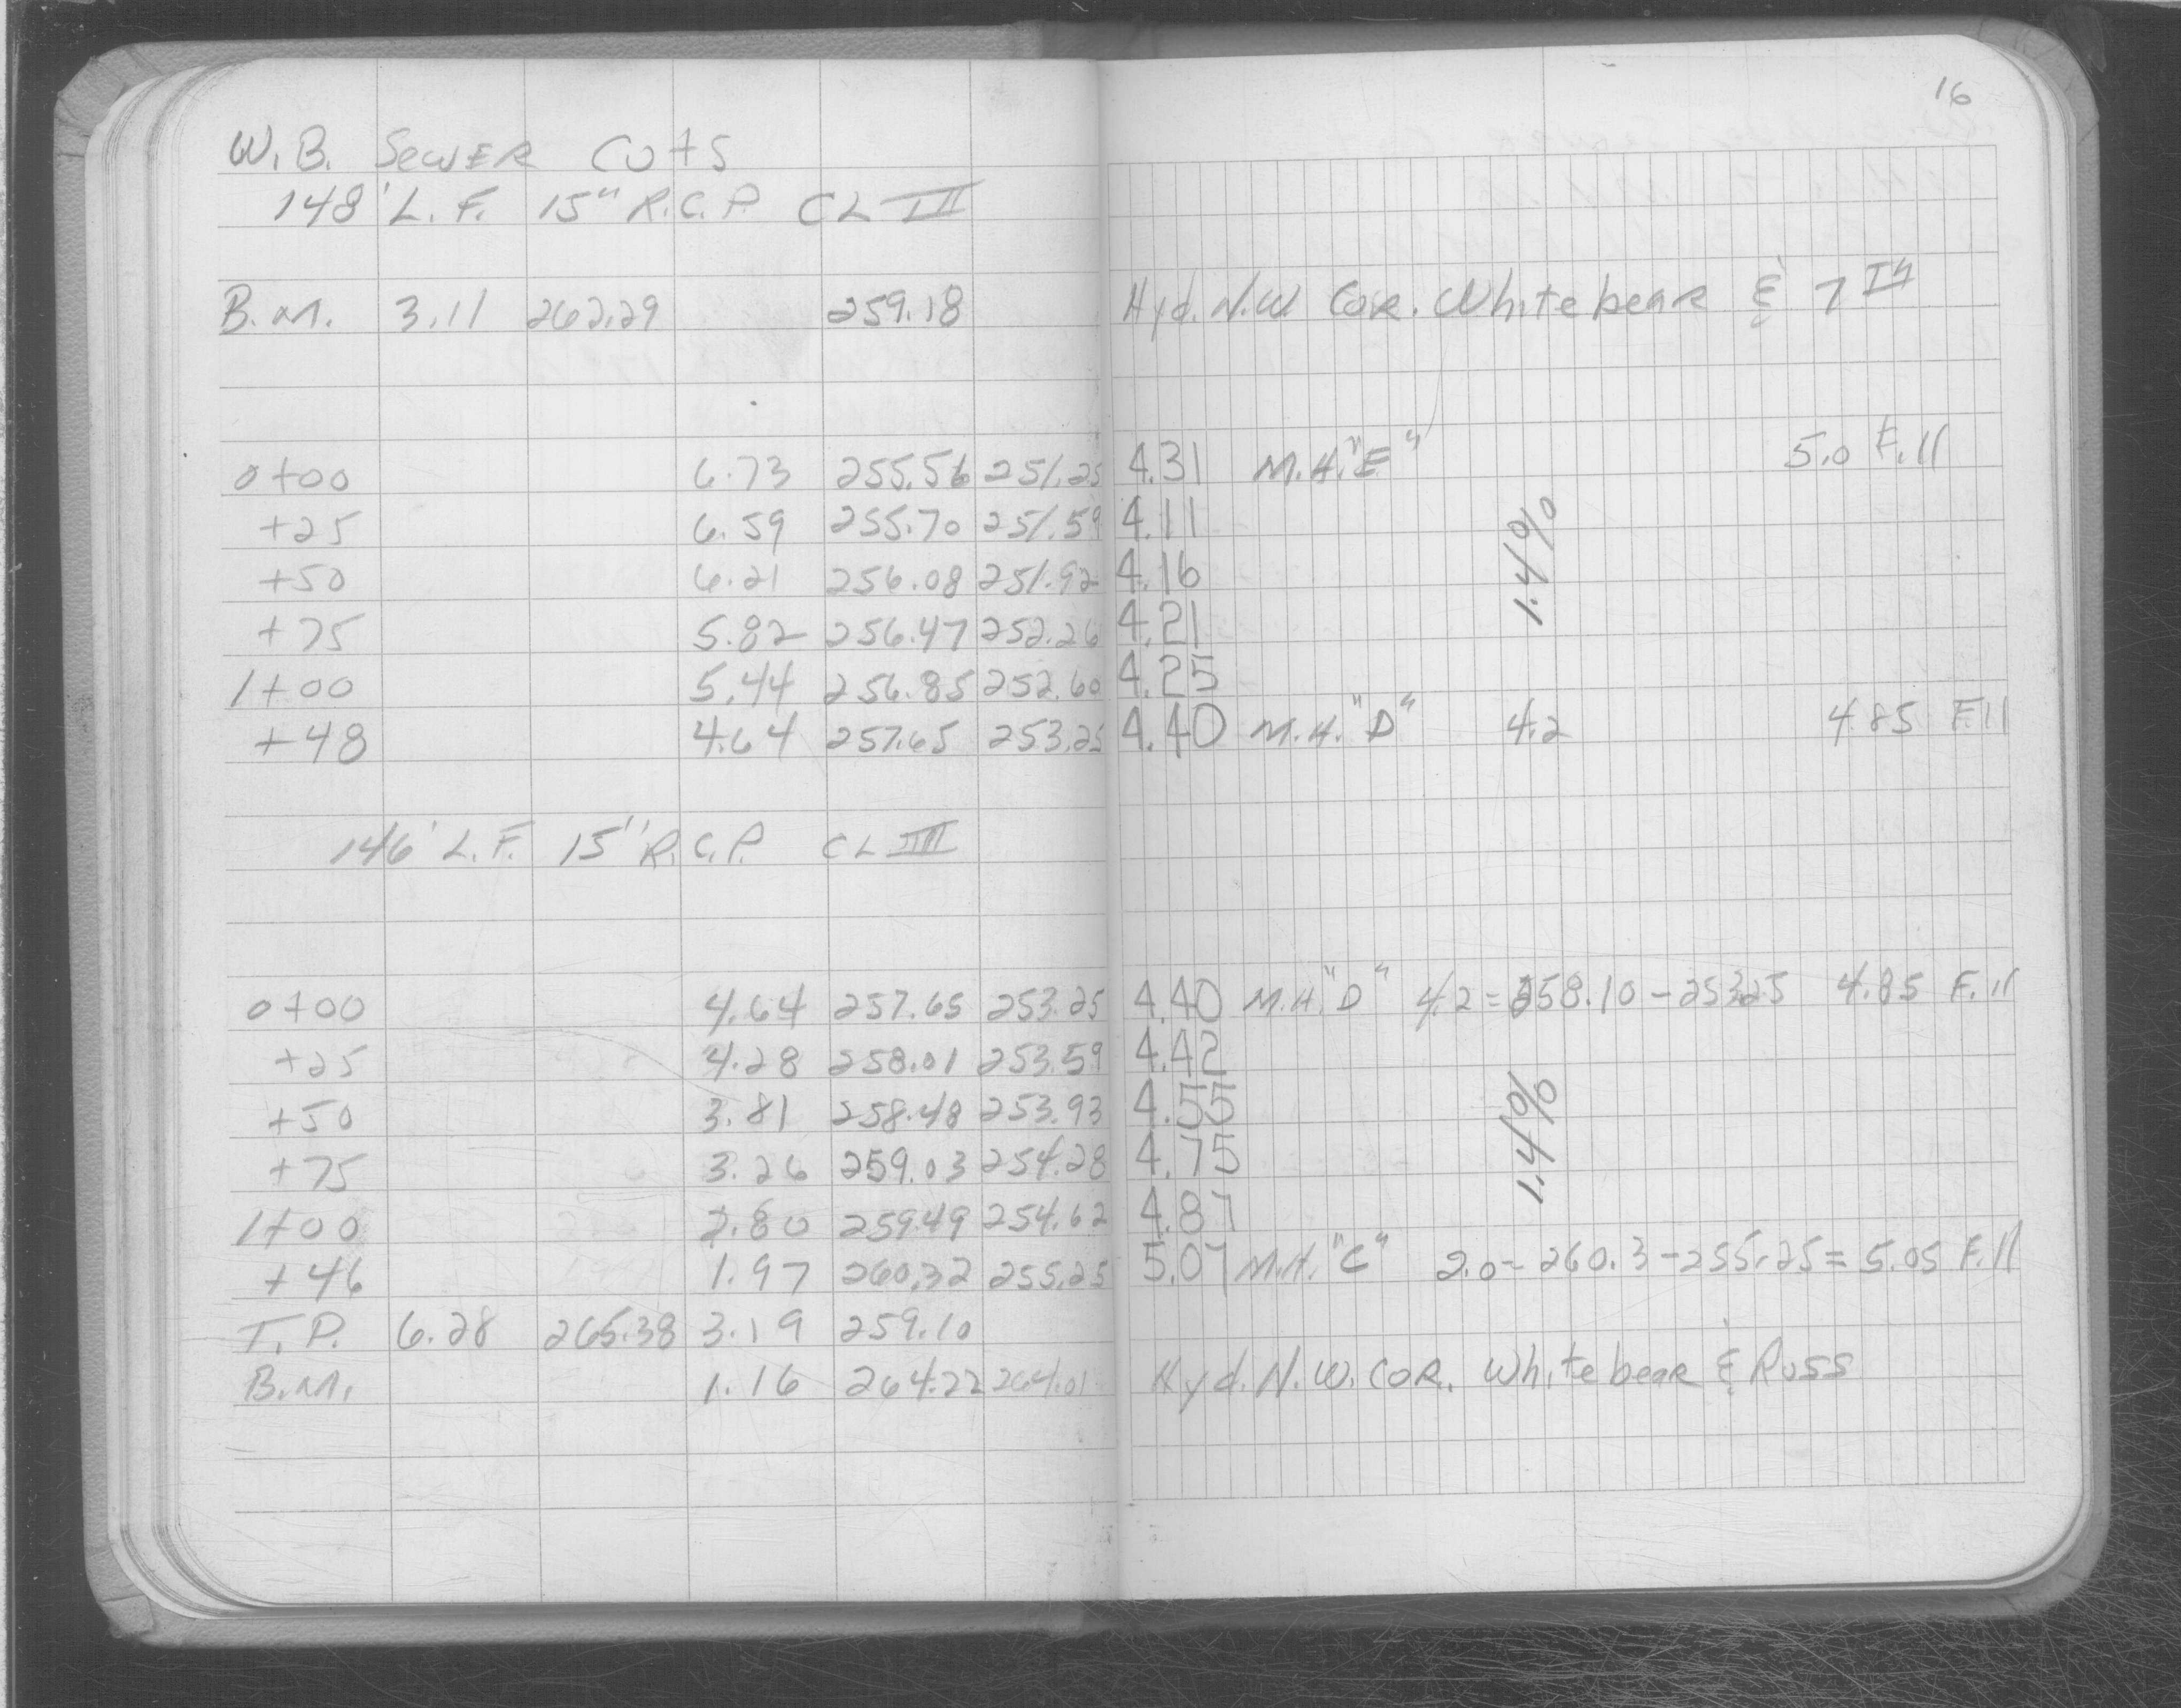 16
W.B. SEWER CUTS
148' L.F. 15" R.C.P. CL III
B.M. 3.11 262.29 259.18 Hyd. N.W. COR. Whitebear & 7TH
0+00 6.73 255.56 251.25 4.31 M.H. "E" 5.0 Fill
+25 6.59 255.70 251.59 4.11
+50 6.21 256.08 251.92 4.16
1.4%
+75 5.82 256.47 252.26 4.21
1+00 5.44 256.85 252.60 4.25
+48 4.64 257.65 253.25 4.40 M.H. "D" 4.2 4.85 Fill
146' L.F. 15" R.C.P. CL III
0+00 4.64 257.65 253.25 4.40 M.H. "D" 4.2 = 258.10 - 253.25 4.85 Fill
+25 4.28 258.01 253.59 4.42
+50 3.81 258.48 253.93 4.55
1.4%
+75 3.26 259.03 254.28 4.75
1+00 2.80 259.49 254.62 4.87
+46 1.97 260.32 255.25 5.07 M.H. "C" 2.0 = 260.3 - 255.25 = 5.05 Fill
T.P. 6.28 265.38 3.19 259.10
B.M. 1.16 264.22 264.01 Hyd. N.W. COR. Whitebear & Ross